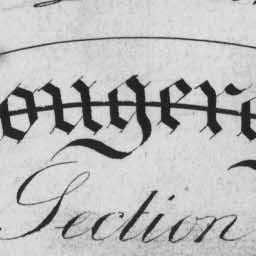 ougere
Section